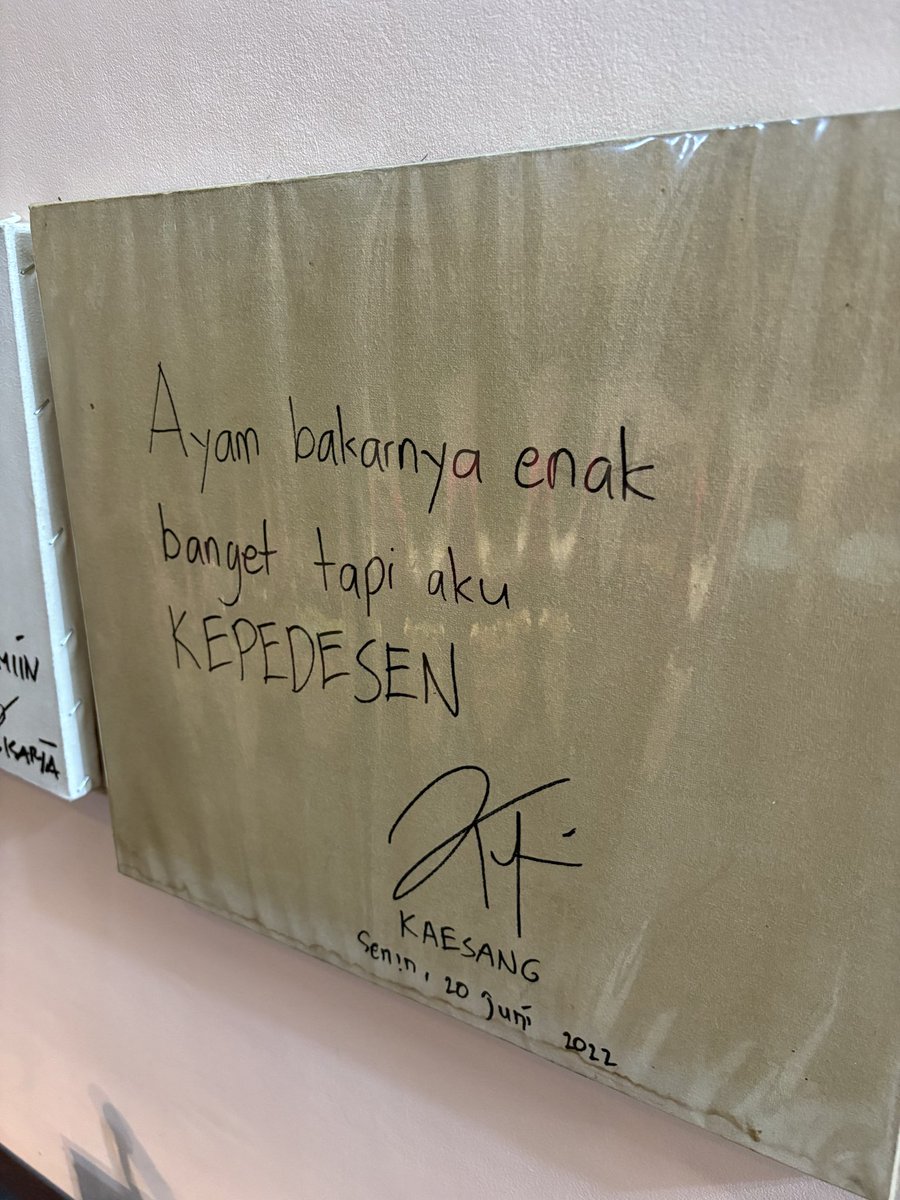 Ayam bakarnya enak
banget tapi aku
KEPEDESEN
KAESANG
Senin, 20 Juni 2022
MIIN